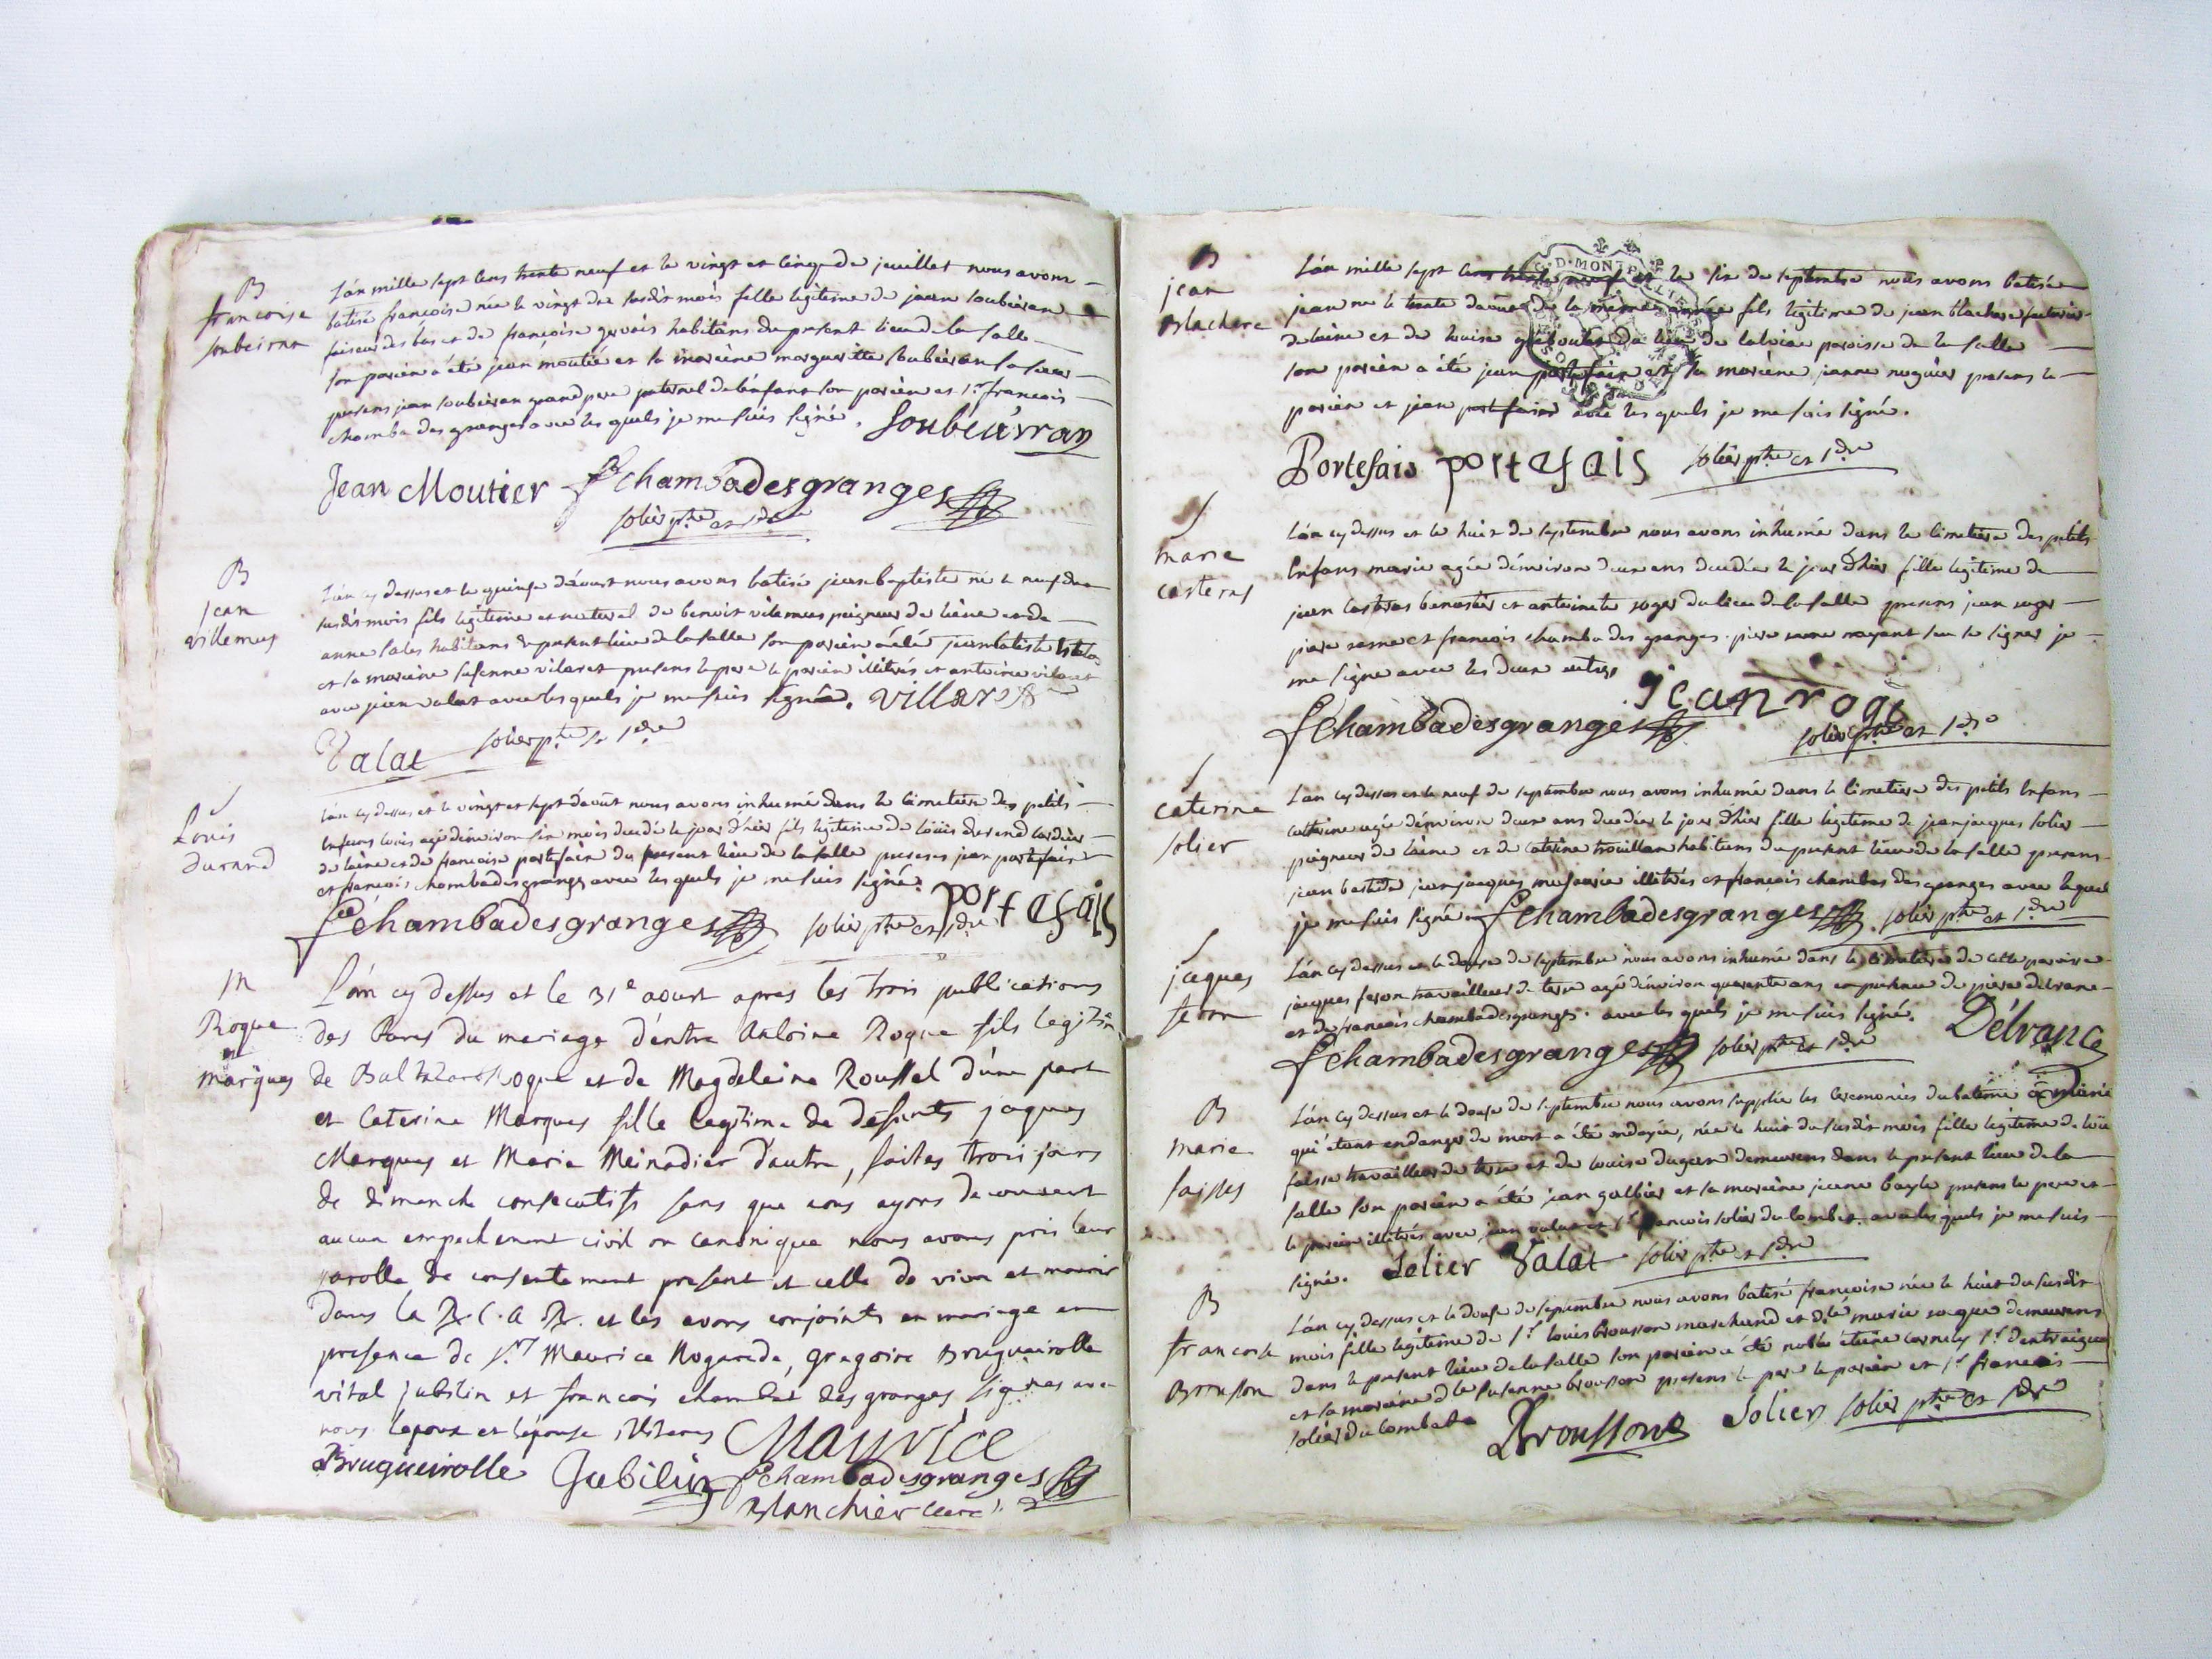 B
francoise
soubeiran
L'an mille sept cens trente neuf et le vingt et cinq de jeuillet nous avons
batisé francoise née le vingt du susdit mois fille legiteme de jean soubeiran
faiseur des bas et de françoise gervais habitans du present lieu de la salle
son parein a été jean moutier et sa mareine margueritte soubeiran sa sœur
presens jean soubeiran grand pere paternel de l'enfant son parein et sr francois
chamba des granges avec les quels je me suis signé. Soubeiran
Jean Moutier fchambadesgranges
solier ptre et sdre
B
jean
villemus
L'an cy dessus et le quinse d'aoust nous avons batisé jean baptiste né le neuf du
susdit mois fils legiteme et naturel de benoit vilemus peigneur de laine et de
anne salles habitans du present lieu de la salle son parein a été jean batiste
et sa mareine susenne vilaret presens le pere le parein illitrés et antoine vilaret
avec jean valat avec les quels je me suis signé. Villaret
Valat solier ptre et sdre
S
Louis
durand
L'an cy dessus et le vingt et sept d'août nous avons inhumé dans le cimetiere des petits
enfans louis agé d'environ six mois decedé le jour d'hier fils legiteme de loüis durand cardeur
de laine et de francoise portefaix du present lieu de la salle presens jean portefaix
et francois chamba des granges avec les quels je me suis signé. portefais
fchambadesgranges solier ptre et sdre
M
Roque
et
marques
L'an cy dessus et le 31e aoust apres les trois publications
des bans du mariage d'entre Antoine Roque fils legitime
de Balthazar Roque et de Magdeleine Roussel d'une part
et Caterine Marques fille legitime de defunts jaques
Marques et Marie Meinadier d'autre, faites trois jours
de dimanche consecutifs sans que nous ayons decouvert
aucun empechement civil ou canonique nous avons pris leur
parolle de consentement present et celle de vivre et mourir
dans la R.C.A.R. et les avons conjoints en mariage en
presence de srs Maurice Nogarede, gregoire Brugueirolle
vital jubilin et francois chamba des granges signes avec
nous l'epoux et l'epouse illiteres Maurice
Brugueirolle Jubilin fchambadesgranges
Blanchier curé
B
jean
Blachere
L'an mille sept cens trente neuf et le six de septembre nous avons batisé
jean né le trente d'aoust de la meme année fils legitime de jean blachere
de laine et de louise du lieu de paroisse de la salle
son parein a été jean portefaix et sa mareine jeanne noguier presens le
parein et jean portefaix avec les quels je me suis signé.
Portefais portefais solier ptre et sdre
S
marie
casteras
L'an cy dessus et le huit de septembre nous avons inhumé dans le cimetiere des petits
enfans marie agée d'environ deux ans decedée le jour d'hier fille legiteme de
jean casteras banastier et antoinete roger du lieu de la salle presens jean roger
piere et francois chamba des granges. piere n'ayant seu se signer je
me signe avec les deux autres. jean roge
fchambadesgranges solier ptre et sdre
S
caterine
solier
L'an cy dessus et le neuf de septembre nous avons inhumé dans le cimetiere des petits enfans
catterine agée d'environ deux ans decedée le jour d'hier fille legiteme de jean jacques solier
peigneur de laine et de caterine trouillan habitans du present lieu de la salle presens
jean bastide jean jacques illitrés et francois chamba des granges avec lequel
je me suis signé fchambadesgranges solier ptre et sdre
S
jaques
feron
L'an cy dessus et le douse de septembre nous avons inhumé dans le cimetiere de cette paroisse
jacques feron travailleur de terre agé d'environ quarante ans en presence de piere delranc
et de francois chamba des granges. avec les quels je me suis signé. Délranc
fchambadesgranges solier ptre et sdre
B
marie
faisses
L'an cy dessus et le douse de septembre nous avons supplée les ceremonies du bateme a marie
qui etant en danger de mort a été ondoyée, née le huit du susdit mois fille legiteme de loüis
faisse travailleur de terre et de louise dugas demeurans dans le present lieu de la
salle son parein a été jean galbier et sa mareine jeanne bayle presens le pere et
le parein illitrés avec jean valat et sr francois solier du combet. avec les quels je me suis
signé. Solier Valat solier ptre et sdre
B
francoise
Brousson
L'an cy dessus et le douse de septembre nous avons batisé francoise née le huit du susdit
mois fille legiteme de sr louis brousson marchand et dlle marie roque demeurans
dans le present lieu de la salle son parein a été noble etiene cornely sr d'entraigues
et sa mareine dlle susanne brousson presens le pere le parein et sr francois
solier du combet Broussone Solier solier ptre et sdre